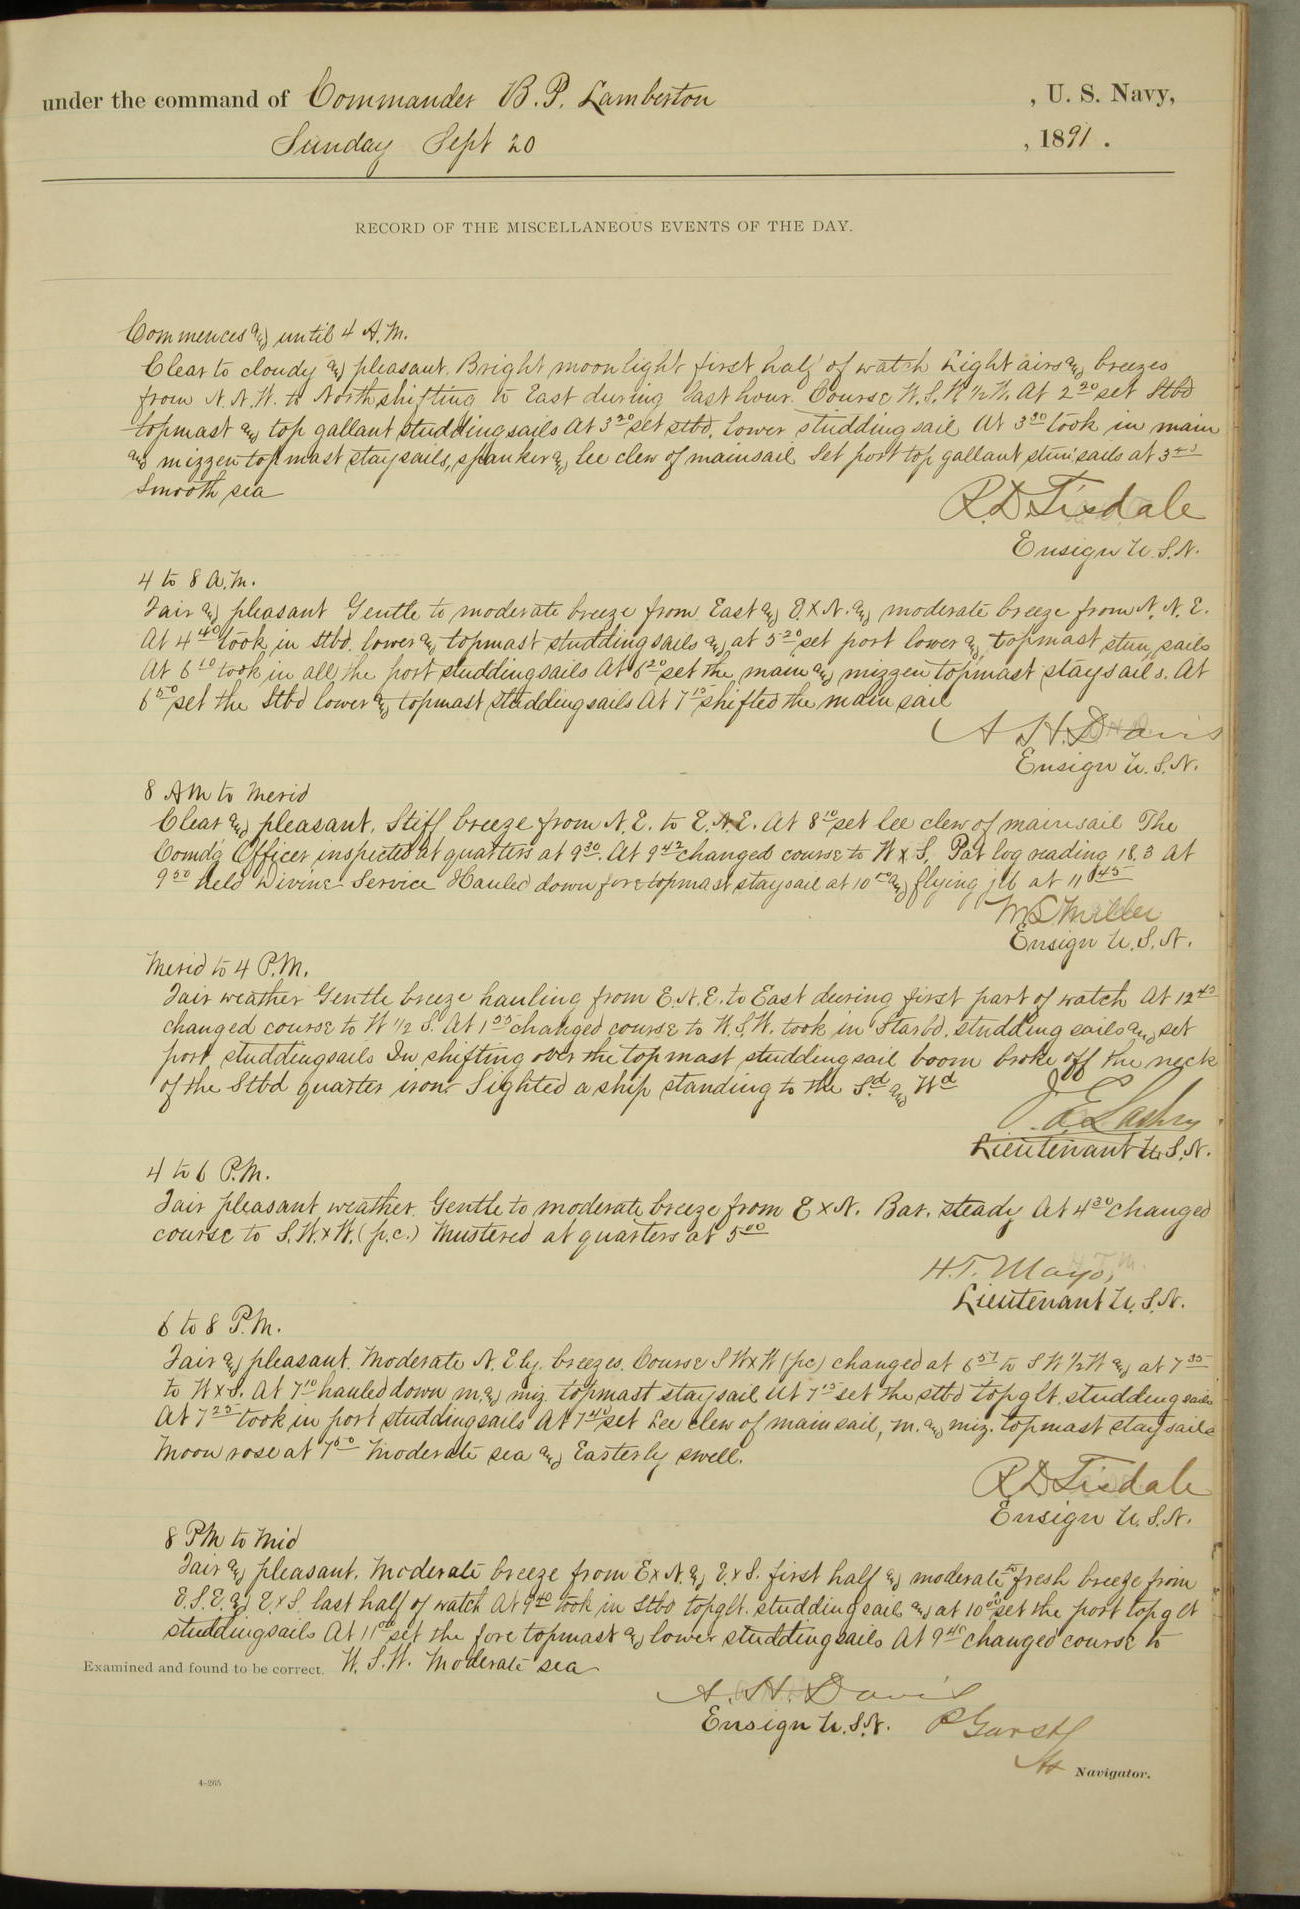 under the command of Commander B. P. Lamberton , U. S. Navy,
Sunday Sept 20 , 1891 .
RECORD OF THE MISCELLANEOUS EVENTS OF THE DAY.
Commences and until 4 A.M.
Clear to cloudy and pleasant. Bright moonlight first half of watch Light airs and breezes
from N.N.W. to North shifting to East during last hour. Course W.S.W ½ W. At 2 20 set Stbd
topmast and top gallant studdingsails At 3 20 set stbd. lower studdingsail At 3 30 took in main
and mizzen topmast staysails, spanker and lee clew of mainsail Set port top gallant stun'sails at 3 45
Smooth sea
R.D. Tisdale
Ensign U.S.N.
4 to 8 A.M.
Fair and pleasant Gentle to moderate breeze from East and E.xN. and moderate breeze from N.N.E.
At 4 40 took in Stbd. lower and topmast studdingsails and at 5 20 set port lower and topmast stun sails
At 6 10 took in all the port studdingsails At 6 20 set the main and mizzen topmast staysails. At
6 50 set the Stbd lower and topmast studdingsails At 7 15 shifted the mainsail
A.H. Davis
Ensign U.S.N.
8 AM to Merid
Clear and pleasant. Stiff breeze from N.E. to E.N.E. At 8 10 set lee clew of mainsail The
Comd'g Officer inspected at quarters at 9 30. At 9 42 changed course to W x S. Pat log reading 18.3 At
9 50 held Divine Service Hauled down fore topmast staysail at 10 and flying jib at 11 45
M.S. Miller
Ensign U.S.N.
Merid to 4 P.M.
Fair weather Gentle breeze hauling from E.N.E. to East during first part of watch At 12 45
changed course to W ½ S. At 1 55 changed course to W.S.W. took in Starbd. studding sails and set
port studdingsails In shifting over the topmast studdingsail boom broke off the neck
of the Stbd quarter iron. Sighted a ship standing to the Sd. and Wd
Lieutenant U.S.N.
4 to 6 P.M.
Fair pleasant weather. Gentle to moderate breeze from E x N. Bar. steady At 4 30 changed
course to S.W.xW. (p.c.) Mustered at quarters at 5 00
H.T. Mayo,
Lieutenant U.S.N.
6 to 8 P.M.
Fair and pleasant. Moderate N.Ely. breezes. Course SWxW (pc) changed at 6 57 to SW ½ W and at 7 35
to W x S. At 7 10 hauled down m. and miz. topmast staysail At 7 15 set the stbd topglt. studdingsails
At 7 25 took in port studdingsails At 7 40 set Lee clew of mainsail, m. and miz. topmast staysails
Moon rose at 7 50 Moderate sea and Easterly swell.
R.D. Tisdale
Ensign U.S.N.
8 PM to Mid
Fair and pleasant. Moderate breeze from ExN. and E.xS. first half and moderate to fresh breeze from
E.S.E. and E.xS. last half of watch At 9 40 took in Stbd topglt. studdingsail and at 10 00 set the port topglt
studdingsails At 11 00 set the fore topmast and lower studdingsails At 9 45 changed course to
Examined and found to be correct. W.S.W. Moderate sea
A.H. Davis
Ensign U.S.N. P Garst
Navigator.
4-265